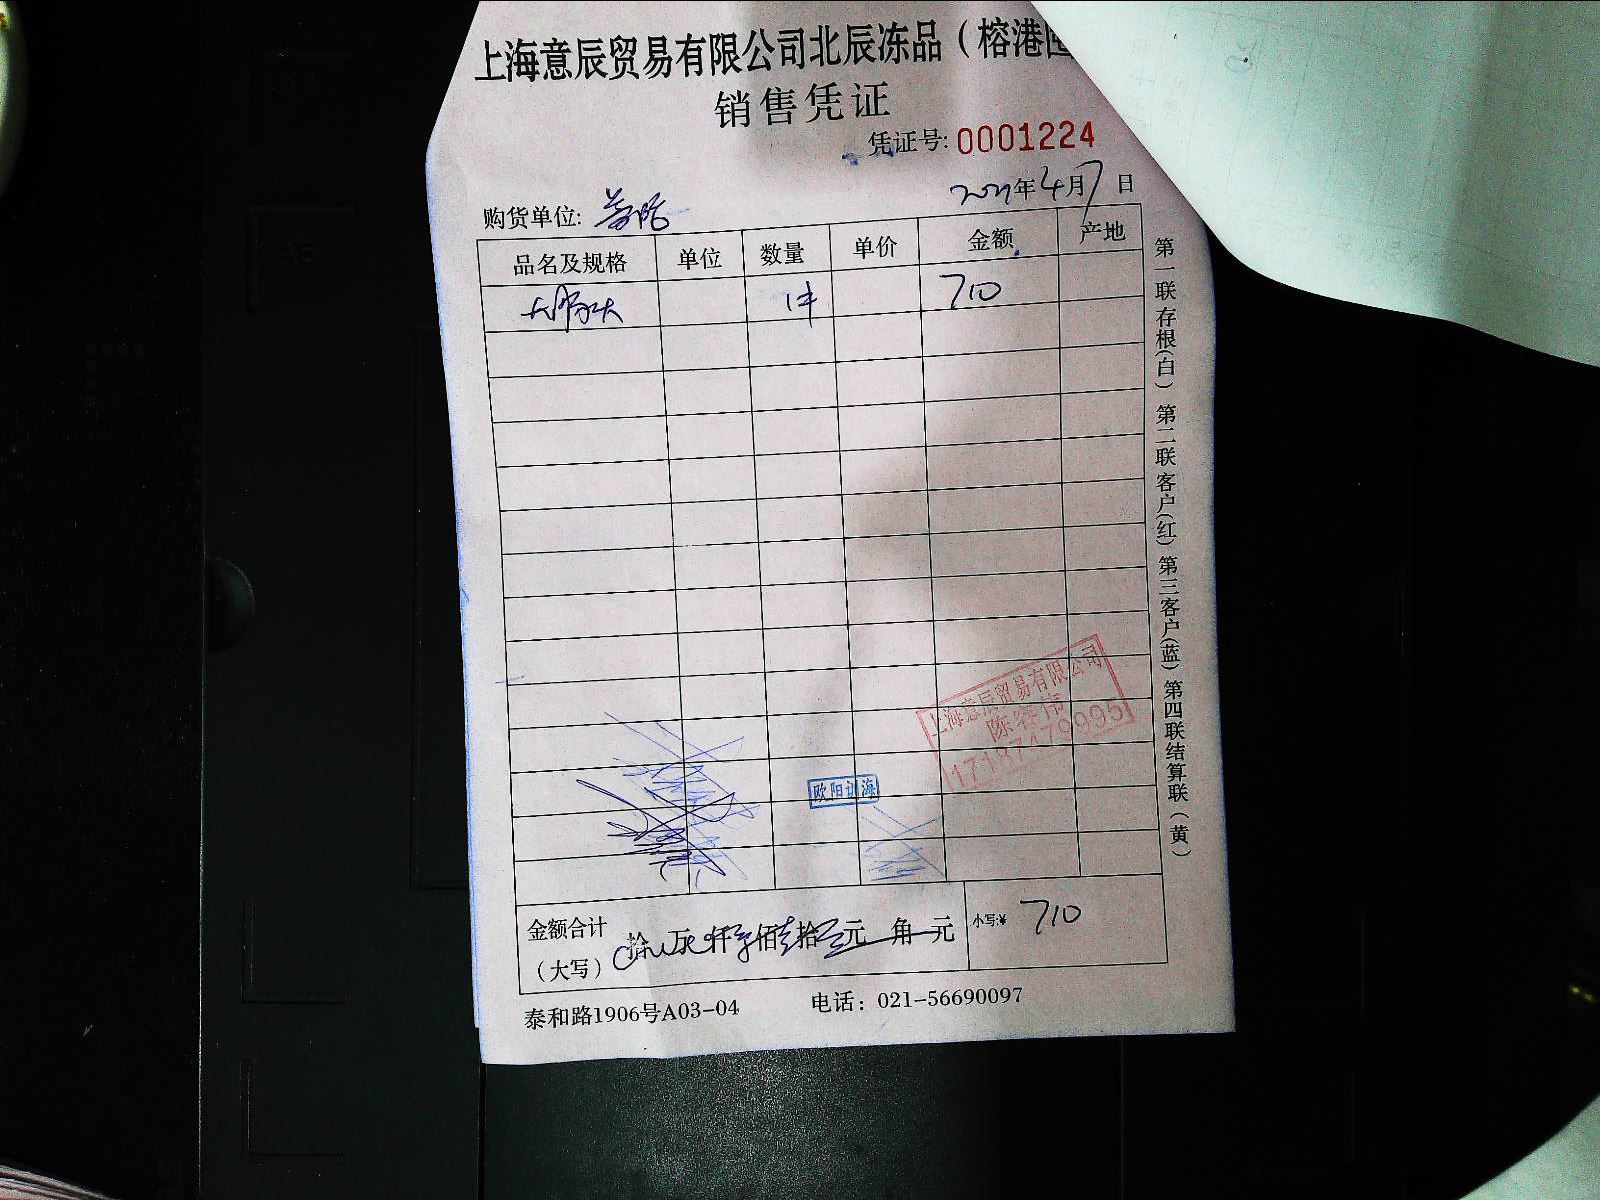 上海意辰贸易有限公司北辰冻品（榕港
销售凭证
凭证号: 0001224
2021年4月7日
购货单位:
品名及规格 单位 数量 单价 金额 产地
1件 710
上海意辰贸易有限公司
陈容伟
欧阳训海
金额合计（大写） 拾 万 仟 佰 拾 元 角 元 小写:¥ 710
泰和路1906号A03-04 电话：021-56690097
第一联存根(白) 第二联客户(红) 第三客户(蓝) 第四联结算联（黄）